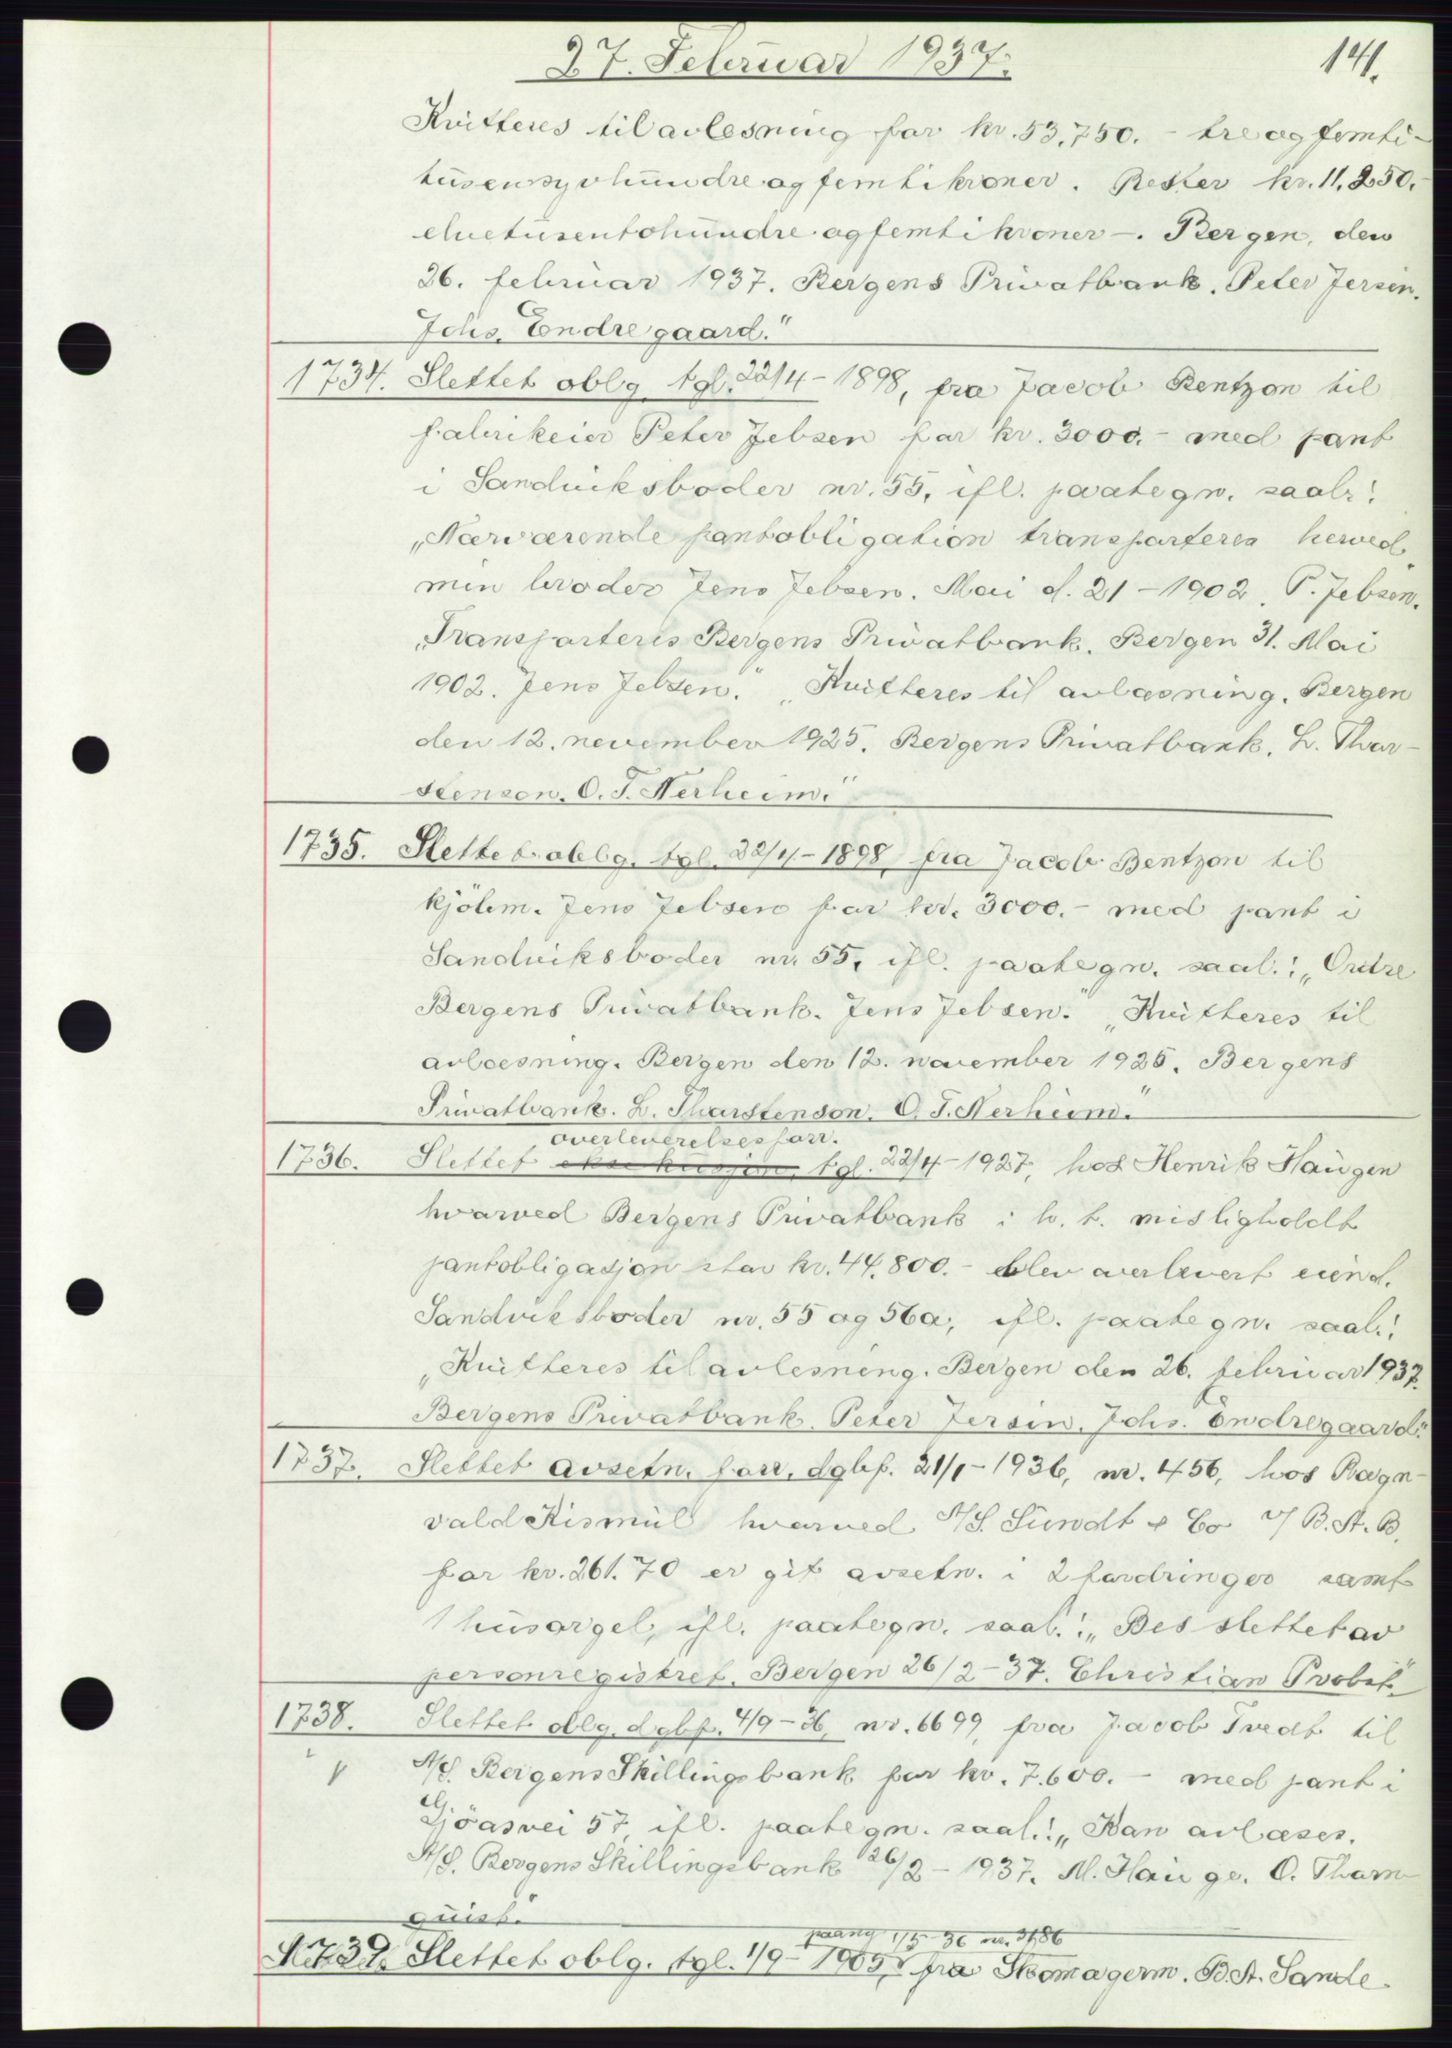 27. Februar 1937.
141.
Kvitteres til avlesning for kr. 53,750.- treogfemti-
tusensyvhundreogfemtikroner. Rester kr. 11,250.-
elvetusentohundreogfemtikroner-. Bergen, den
26. februar 1937. Bergens Privatbank. Peter Jersin.
Johs. Endregaard."
1734. Slettet oblg. tgl. 22/4-1898, fra Jacob Bentzon til
fabrikeier Peter Jebsen for kr. 3000.- med pant
i Sandviksboder nr. 55, ifl. paategn. saal.:
„Nærværende pantobligation transporteres herved
min broder Jens Jebsen. Mai d. 21-1902. P. Jebsen.
„Transporteres Bergens Privatbank. Bergen 31. Mai
1902. Jens Jebsen." „Kvitteres til avlæsning. Bergen
den 12. november 1925. Bergens Privatbank. L. Thor-
stensen. O. T. Nerheim."
1735. Slettet oblg. tgl. 22/4-1898, fra Jacob Bentzon til
kjöbm. Jens Jebsen for kr. 3000.- med pant i
Sandviksboder nr. 55, ifl. paategn. saal.: „Ordre
Bergens Privatbank. Jens Jebsen." „Kvitteres til
avlæsning. Bergen den 12. november 1925. Bergens
Privatbank. L. Thorstenson. O. T. Nerheim."
overleverelsesforr.
1736. Slettet ekse kusjon, tgl. 22/4-1927, hos Henrik Haugen
hvorved Bergens Privatbank i h. t. misligholdt
pantobligasjon stor kr. 44,800.- blev overlevert eiend.
Sandviksboder nr. 55 og 56a, ifl. paategn. saal.:
„Kvitteres til avlesning. Bergen den 26. februar 1937.
Bergens Privatbank. Peter Jersin. Johs. Endregaard."
1737. Slettet avsetn. forr. dgbf. 21/1-1936, nr. 456, hos Ragn-
vald Kismul hvorved A/S. Sundt & Co v/ B. St. B.
for kr. 261.70 er git avsetn. i 2 fordringer samt
1 husorgel, ifl. paategn. saal.: „Bes slettet av
personregistret. Bergen 26/2-37. Christian Probst."
1738. Slettet oblg. dgbf. 4/9-36, nr. 6699, fra Jacob Tvedt til
A/S. Bergens Skillingsbank for kr. 7.600.- med pant i
Gjöasvei 57 ifl. paategn. saal.: „Kan avlæses.
A/S. Bergens Skillingsbank 26/2-1937. M. Hauge. O. Thorn
quist."
paany 1/5-36 nr. 3486
1739. Slettet oblg. tgl. 1/9-1905, fra Skomagerm. B. A. Sande